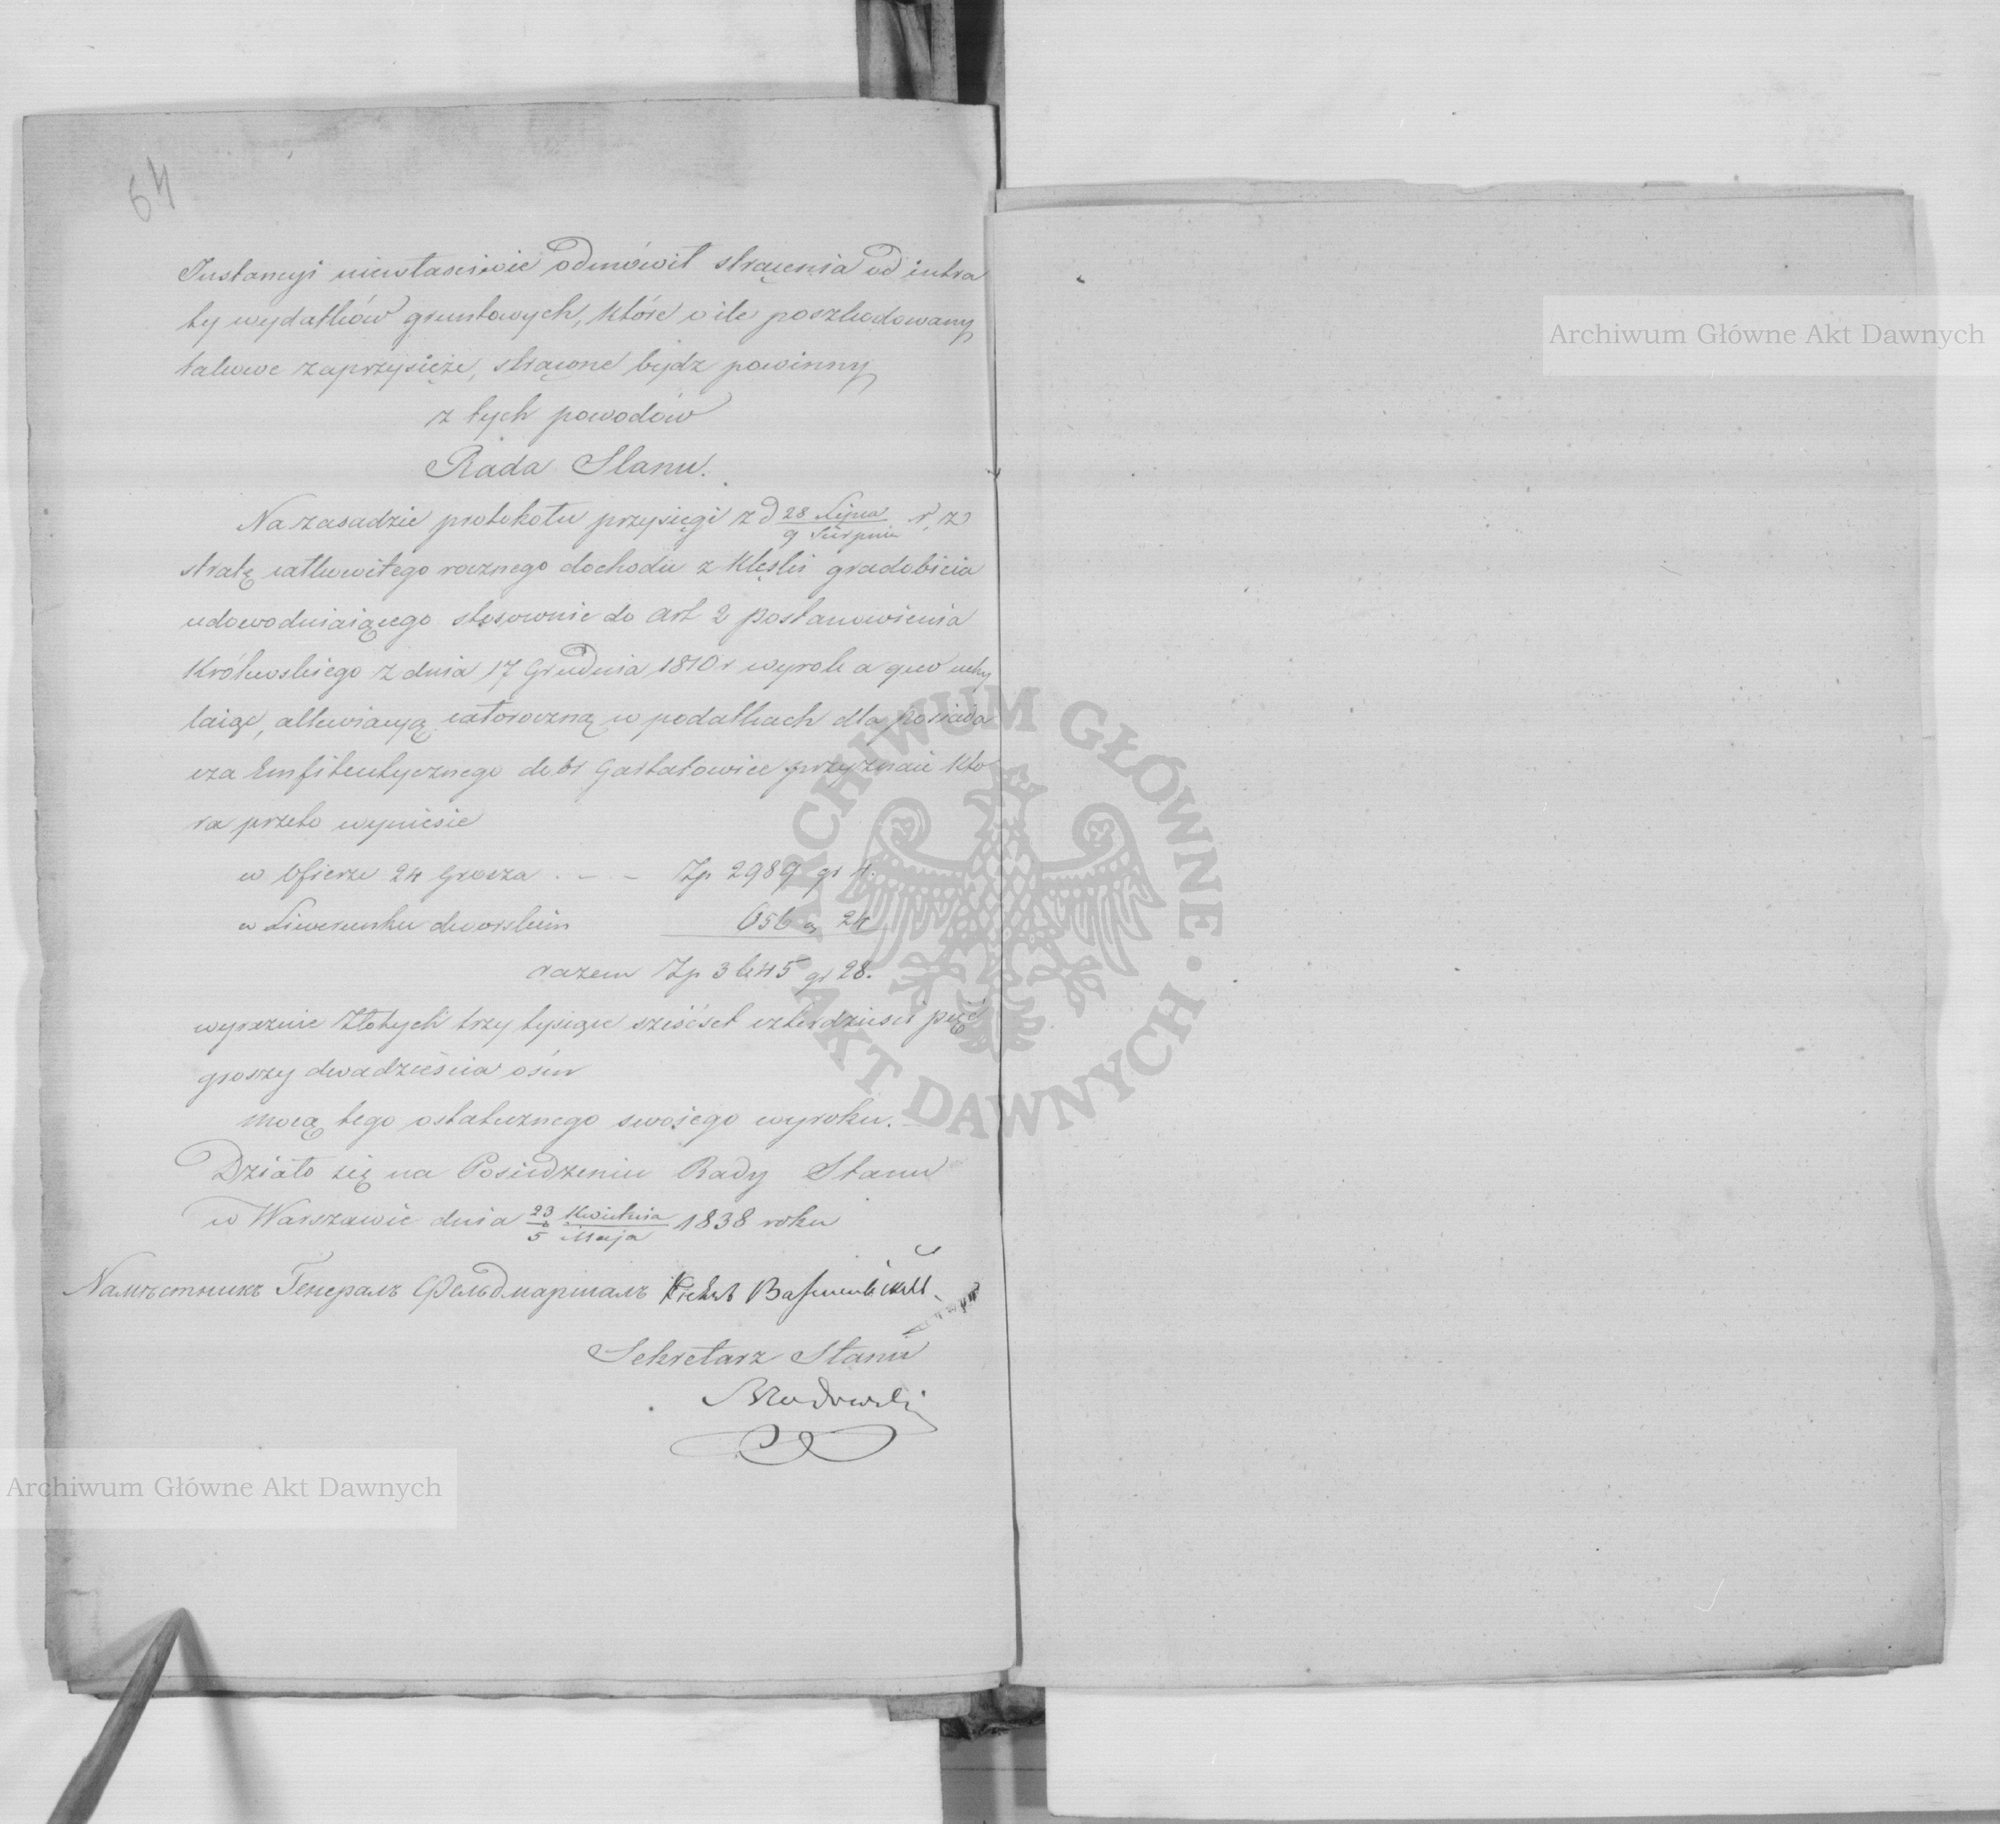 64
Instancyi niewłaściwie odmówił strącenia od intra
ty wydatków gruntowych, które o ile poszkodowany
takowe zaprzysięże, strącone bydz powinny
z tych powodów
Rada Stanu.
Na zasadzie protokołu przysięgi z d 28 Lipca / 9 Sierpnia r, z
stratę całkowitego rocznego dochodu z klęski gradobicia
udowodniaiącego stosownie do art 2 postanowienia
Królewskiego z dnia 17 Grudnia 1810 r wyrok a quo uchy
laiąc, allewiacyą całoroczną w podatkach dla posiada
cza Emfiteutycznego dobr Gartatowice przyznaie któ
ra przeto wyniesie
w Ofierze 24 Grosza . – – Zp 2989 gr 4.
w Liwerunku dworskim 656 " 24
razem Zp 3645 gr 28.
wyraznie Złotych trzy tysiące sześćset czterdzieści pięć
groszy dwadzieścia ośm
mocą tego ostatecznego swoiego wyroku.
Działo się na Posiedzeniu Rady Stanu
w Warszawie dnia 23 Kwietnia / 5 Maja 1838 roku
Намѣстникъ Генералъ Фельдмаршалъ
Sekretarz Stanu
Archiwum Główne Akt Dawnych
Archiwum Główne Akt Dawnych
ARCHIWUM GŁÓWNE · AKT DAWNYCH ·